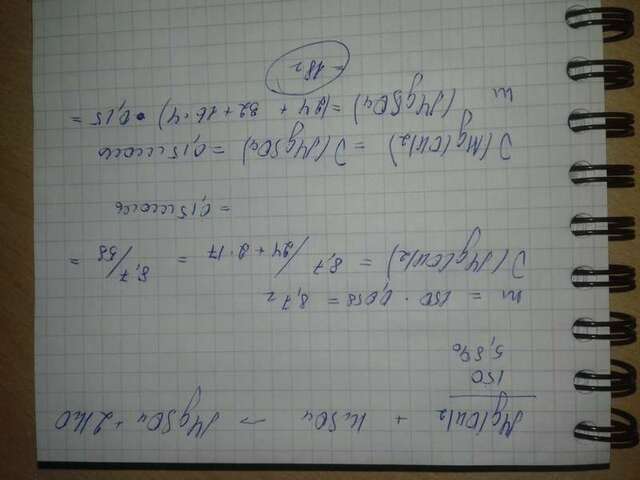 Mg(OH)2 + H2SO4 → MgSO4 + 2H2O
150
5,8%
m = 150 · 0,058 = 8,7 г
ν(Mg(OH)2) = 8,7 / 24 + 2·17 = 8,7 / 58 =
= 0,15 моль
ν(Mg(OH)2) = ν(MgSO4) = 0,15 моль
m (MgSO4) = (24 + 32 + 16·4) · 0,15 =
= 18 г